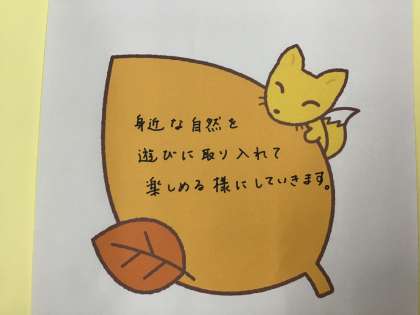 身近な自然を
遊びに取り入れて
楽しめる様にしていきます。